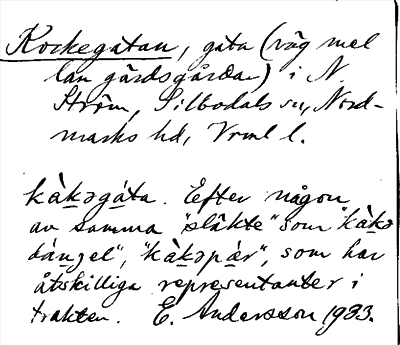 Kockegatan, gata (väg mel
lan gärdsgårdar) i N.
Ström, Silbodals sn, Nord-
marks hd, Vrml l.
kàkəgáta. Efter någon
av samma "släkte" som "kàkə
dániel", "kàkəpár", som har
åtskilliga representanter i
trakten. E. Andersson 1933.